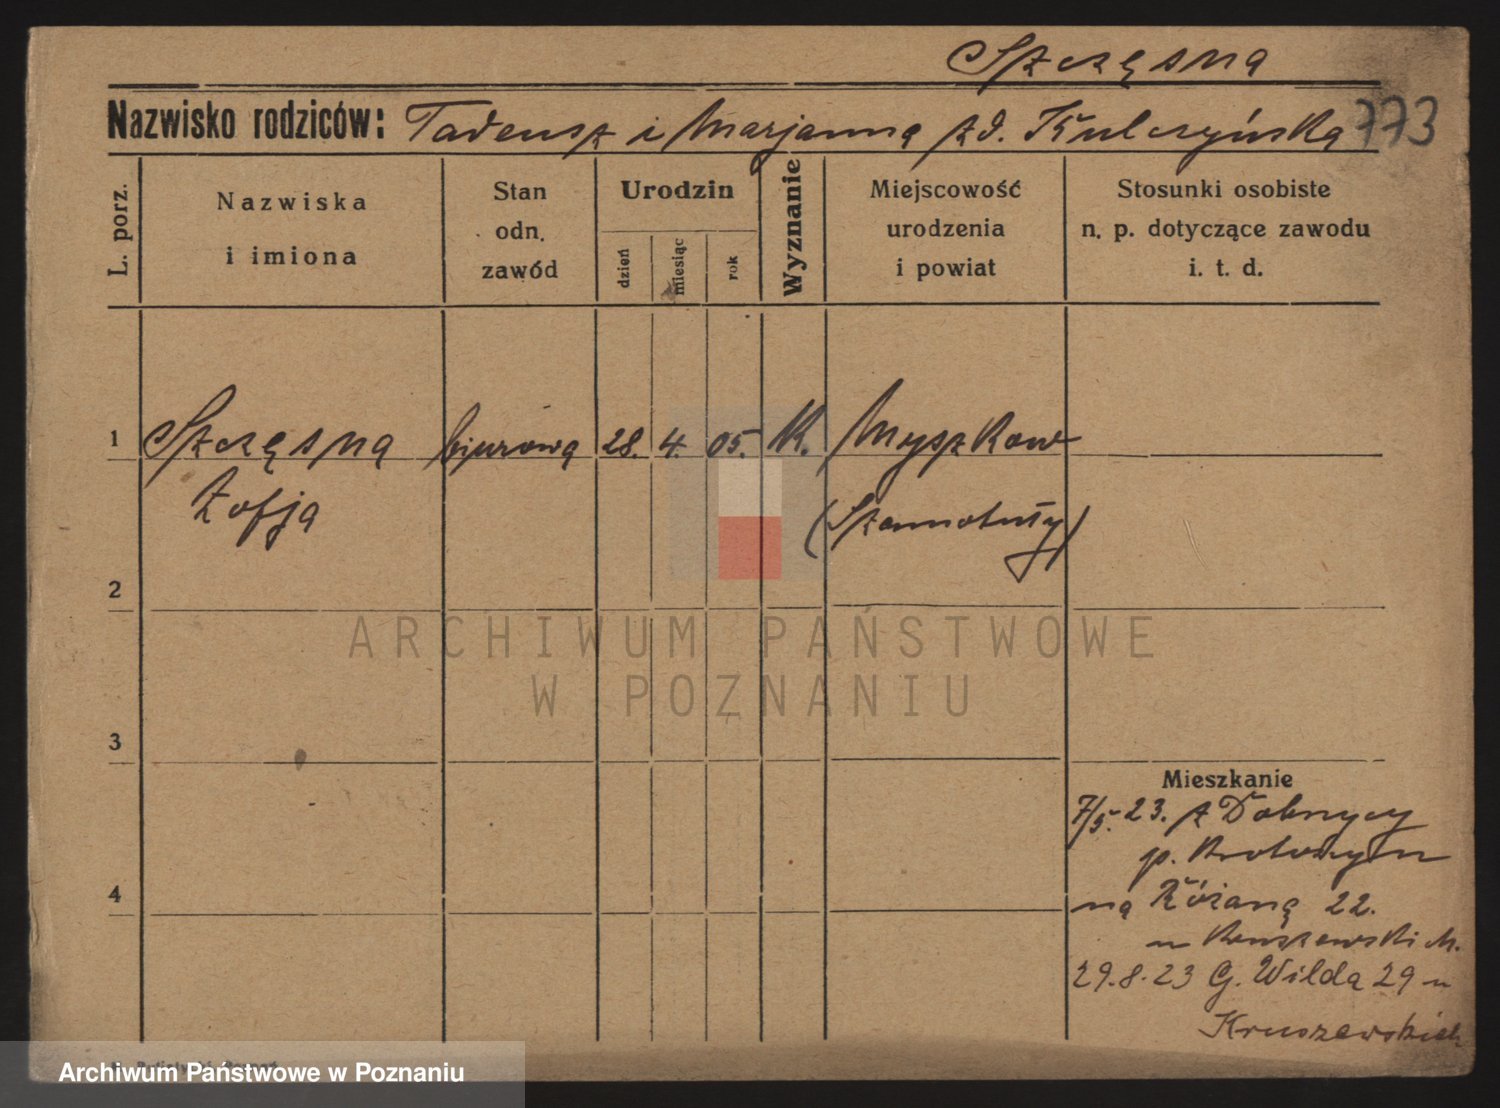 Szczęsna
Nazwisko rodziców: Tadeusz i Marjanna zd. Kulczyńska 773
L. porz.
Nazwiska
i imiona
Stan
odn.
zawód
Urodzin
dzień
miesiąc
rok
Wyznanie
Miejscowość
urodzenia
i powiat
Stosunki osobiste
n. p. dotyczące zawodu
i. t. d.
1 Szczęsna biurowa 28. 4. 05. K. Myszkow
Zofja (Szamotuły)
2
ARCHIWUM PAŃSTWOWE
W POZNANIU
3
Mieszkanie
7/5. 23. z Dobrzycy
p. Krotoszyn
4
na Różaną 22.
u Kruszewski M.
29.8.23 G. Wilda 29 u
Kruszewskich
Archiwum Państwowe w Poznaniu